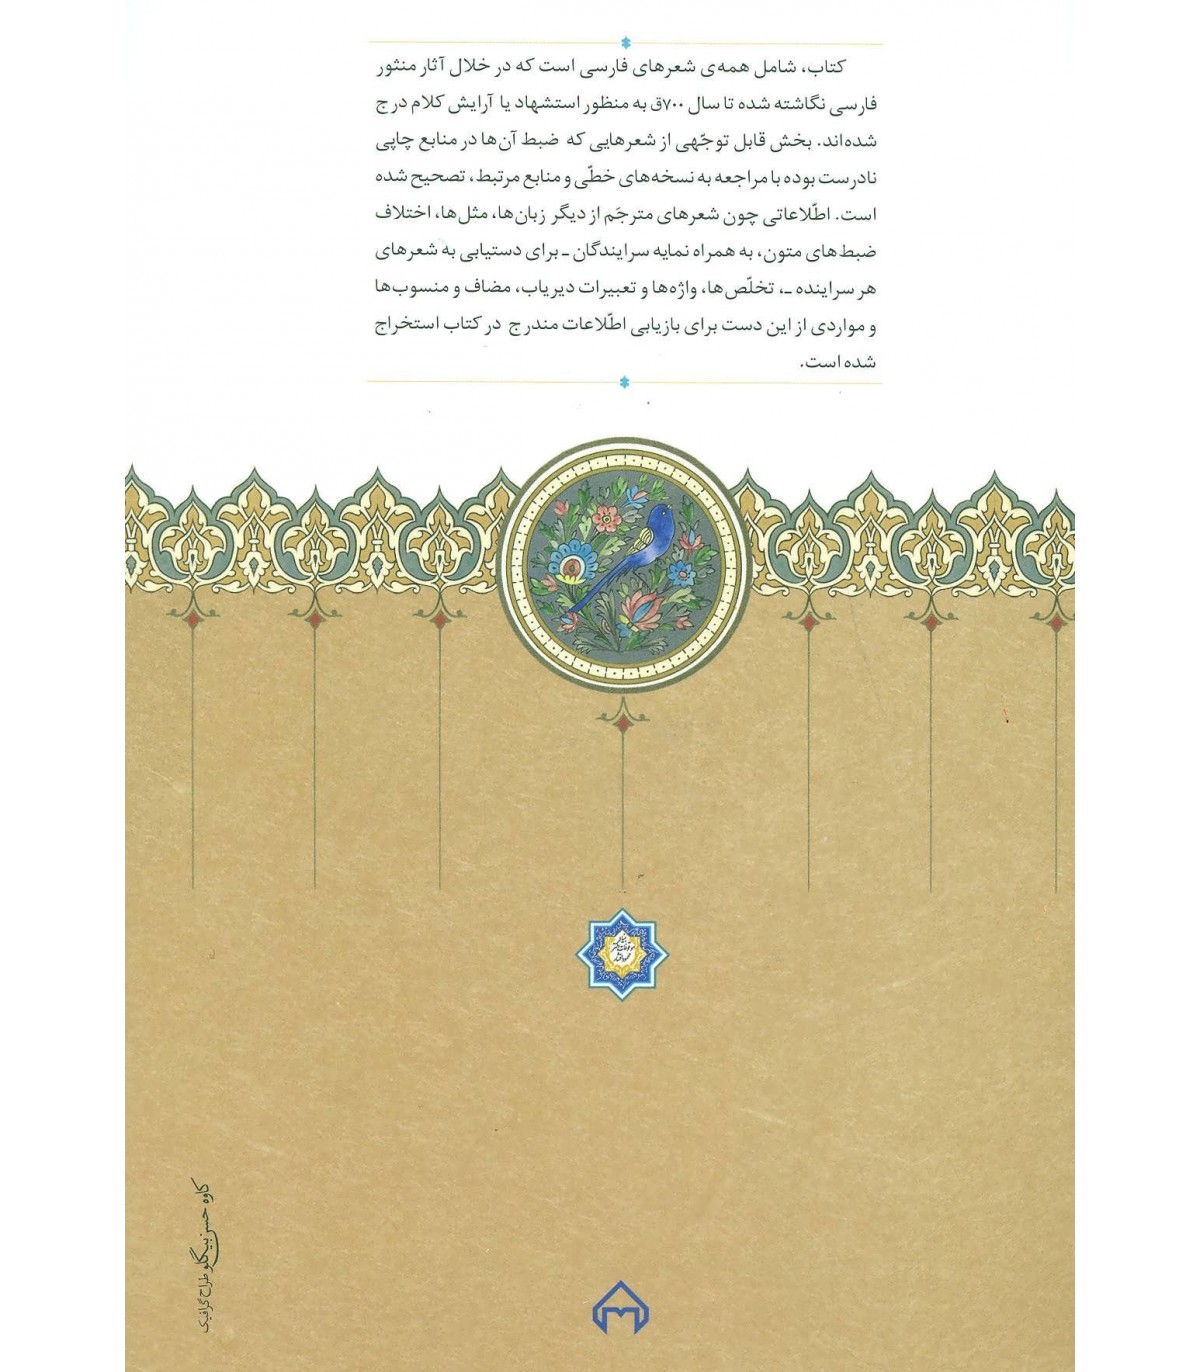 کتاب، شامل همه‌ی شعرهای فارسی است که در خلال آثار منثور
فارسی نگاشته شده تا سال ۷۰۰ق به منظور استشهاد یا آرایش کلام درج
شده‌اند. بخش قابل توجّهی از شعرهایی که ضبط آن‌ها در منابع چاپی
نادرست بوده با مراجعه به نسخه‌های خطّی و منابع مرتبط، تصحیح شده
است. اطّلاعاتی چون شعرهای مترجَم از دیگر زبان‌ها، مثل‌ها، اختلاف
ضبط‌های متون، به همراه نمایه سرایندگان ـ برای دستیابی به شعرهای
هر سراینده ـ، تخلّص‌ها، واژه‌ها و تعبیرات دیریاب، مضاف و منسوب‌ها
و مواردی از این دست برای بازیابی اطّلاعات مندرج در کتاب استخراج
شده است.
کاوه حسن بیگلو طراح گرافیک